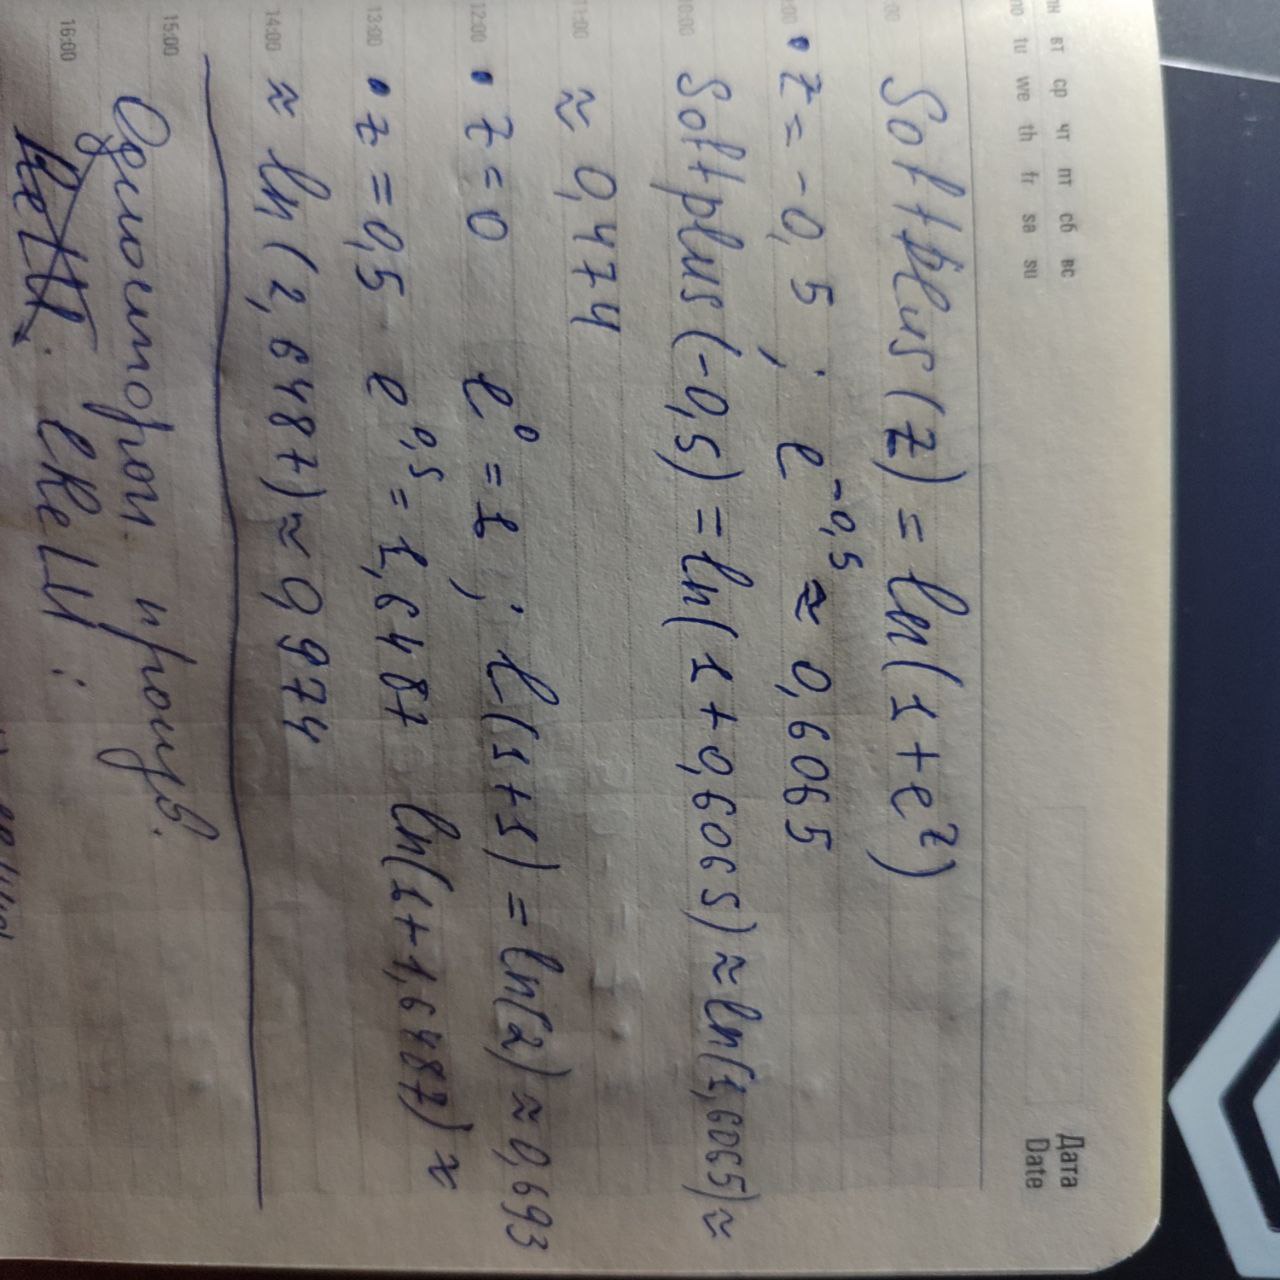 пн вт ср чт пт сб вс
mo tu we th fr sa su
Дата
Date
Softplus(z) = ln(1+e^z)
• z = -0,5 ; e^-0,5 ≈ 0,6065
Softplus(-0,5) = ln(1+0,6065) ≈ ln(1,6065) ≈
≈ 0,474
• z = 0 e^0 = 1 ; l(1+1) = ln(2) ≈ 0,693
• z = 0,5 e^0,5 = 1,6487 ln(1+1,6487) ≈
≈ ln(2,6487) ≈ 0,974
Одностороn. произв.
ReLU. LReLU:
10:00
11:00
12:00
13:00
14:00
15:00
16:00